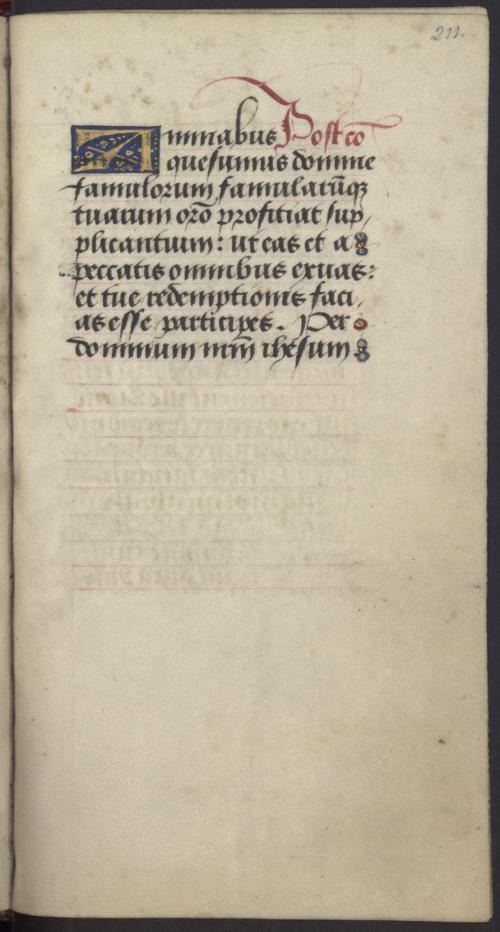 211.
Animabus Post cō
quesumus domine
famulorum famularūq;
tuarum orō proficiat sup,
plicantium: ut eas et a
peccatis omnibus exuas:
et tue redemptionis faci,
as esse participes. Per
dominum nr̄m ihesum